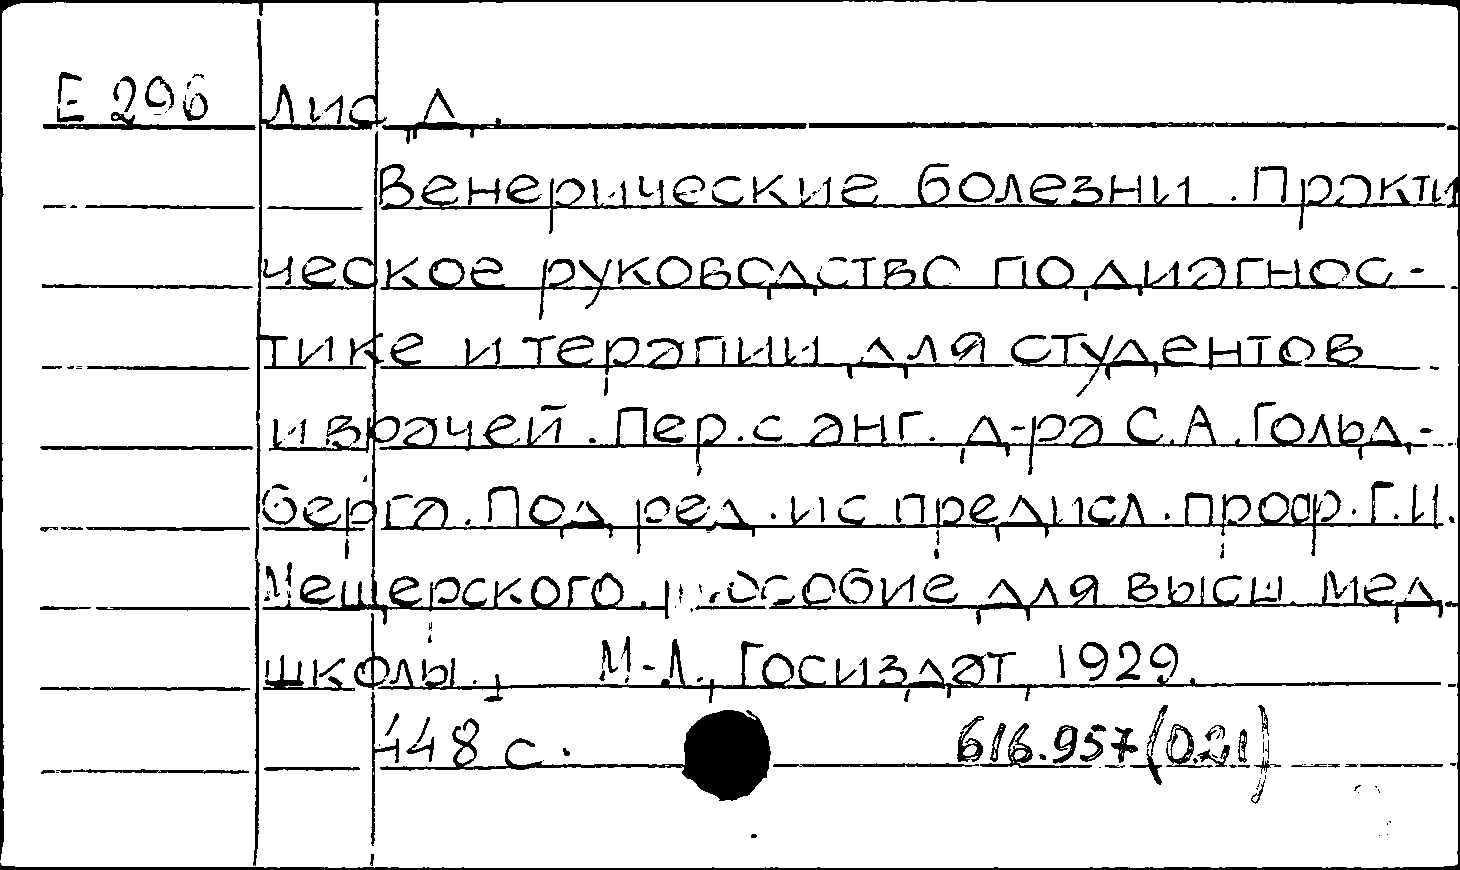 Е 296 Лис Д.
Венерические болезни. Практи
ческое руководство по диагнос-
тике и терапии для студентов
и врачей. Пер. с анг. д-ра С.А. Гольд-
берга. Под ред. и с предисл. проф. Г.И.
Мещерского. пособие для высш. мед.
школы., М-Л., Госиздат, 1929.
448 с. 616.957(021)